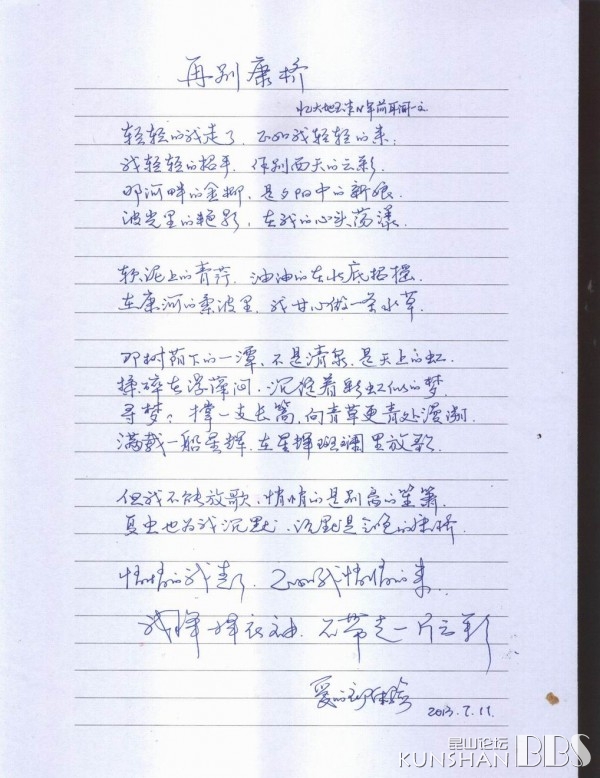 再别康桥
轻轻的我走了，正如我轻轻的来；
我轻轻的招手，作别西天的云彩，
那河畔的金柳，是夕阳中的新娘，
波光里的艳影，在我的心头荡漾。
软泥上的青荇，油油的在水底招摇，
在康河的柔波里，我甘心做一条水草，
那树荫下的一潭，不是清泉，是天上的虹，
揉碎在浮藻间，沉淀着彩虹似的梦，
寻梦？撑一支长篙，向青草更青处漫溯，
满载一船星辉，在星辉斑斓里放歌，
但我不能放歌，悄悄的是别离的笙箫，
夏虫也为我沉默，沉默是今晚的康桥，
悄悄的我走了，正如我悄悄的来，
我挥一挥衣袖，不带走一片云彩
2013.7.11.
昆山论坛
KUNSHAN BBS